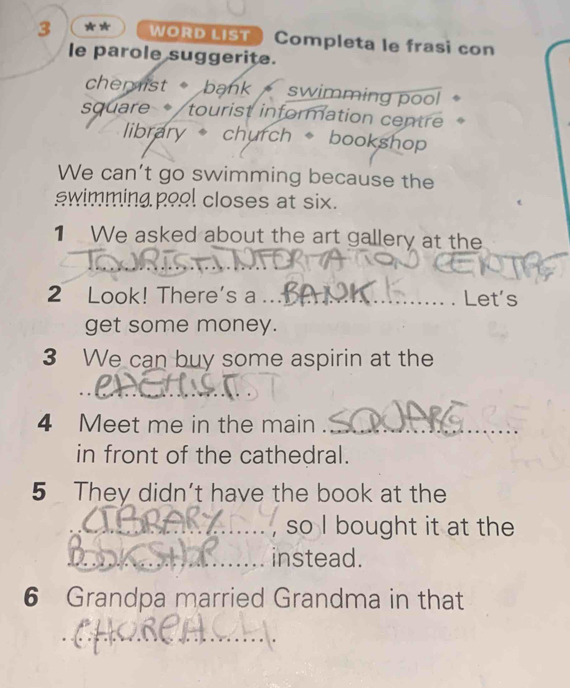 3 ** WORD LIST Completa le frasi con
le parole suggerite.
chemist • bank • swimming pool •
square • tourist information centre •
library • church • bookshop
We can't go swimming because the
swimming pool closes at six.
1 We asked about the art gallery at the
TOURIST INFORTATION CENTRE
2 Look! There's a ... BANK ... . Let's
get some money.
3 We can buy some aspirin at the
.. CHEMIST .. .
4 Meet me in the main SQUARE
in front of the cathedral.
5 They didn't have the book at the
LIBRARY , so I bought it at the
BOOKSHOP instead.
6 Grandpa married Grandma in that